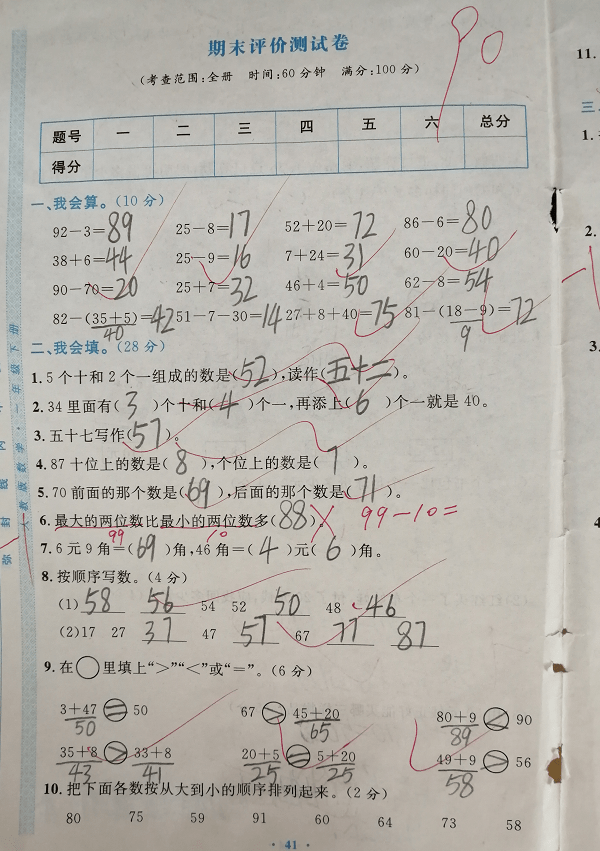 期末评价测试卷
90
(考查范围:全册 时间:60分钟 满分:100分)
题号 一 二 三 四 五 六 总分
得分
一、我会算。(10分)
92-3=89 25-8=17 52+20=72 86-6=80
38+6=44 25-9=16 7+24=31 60-20=40
90-70=20 25+7=32 46+4=50 62-8=54
82-(35+5)=42 51-7-30=14 27+8+40=75 81-(18-9)=72
40 9
二、我会填。(28分)
1.5个十和2个一组成的数是(52),读作(五十二)。
2.34里面有(3)个十和(4)个一,再添上(6)个一就是40。
3.五十七写作(57)。
4.87十位上的数是(8),个位上的数是(7)。
5.70前面的那个数是(69),后面的那个数是(71)。
6.最大的两位数比最小的两位数多(88)。 99-10=
99 10
7.6元9角=(69)角,46角=(4)元(6)角。
8.按顺序写数。(4分)
(1)58 56 54 52 50 48 46
(2)17 27 37 47 57 67 77 87
9.在○里填上“>”“<”或“=”。(6分)
3+47 = 50 67 > 45+20 80+9 < 90
50 65 89
35+8 > 33+8 20+5 = 5+20 49+9 > 56
43 41 25 25 58
10.把下面各数按从大到小的顺序排列起来。(2分)
80 75 59 91 60 64 73 58
·41·
人教版 数学·一年级 下册
密 封 线 内
11.
三、
1.
2.
-1
3.
4